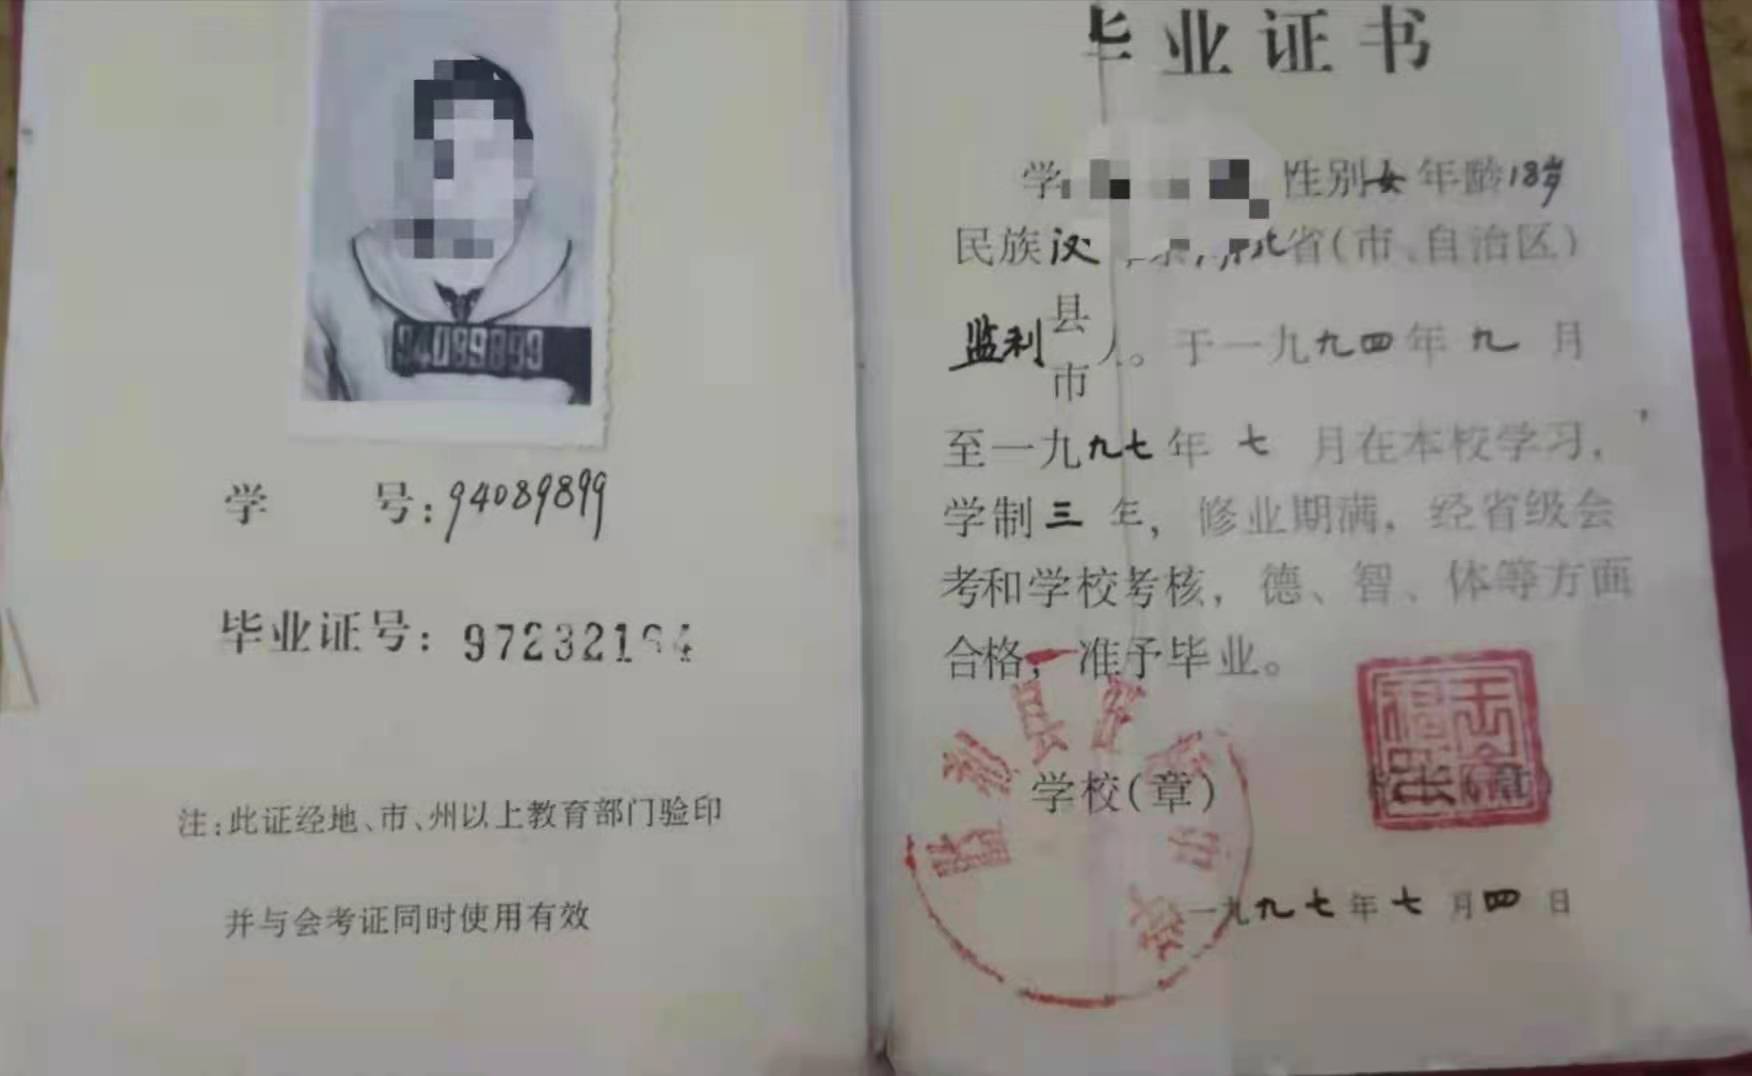 94089899
学 号:94089899
毕业证号:972321
注:此证经地、市、州以上教育部门验印
并与会考证同时使用有效
毕业证书
学 性别女年龄18岁
民族汉 省(市、自治区)
监利 县 市 人。于一九九四年九月
至一九九七年七月在本校学习,
学制三年,修业期满,经省级会
考和学校考核,德、智、体等方面
合格,准予毕业。
学校(章)
监利县
一九九七年七月四日